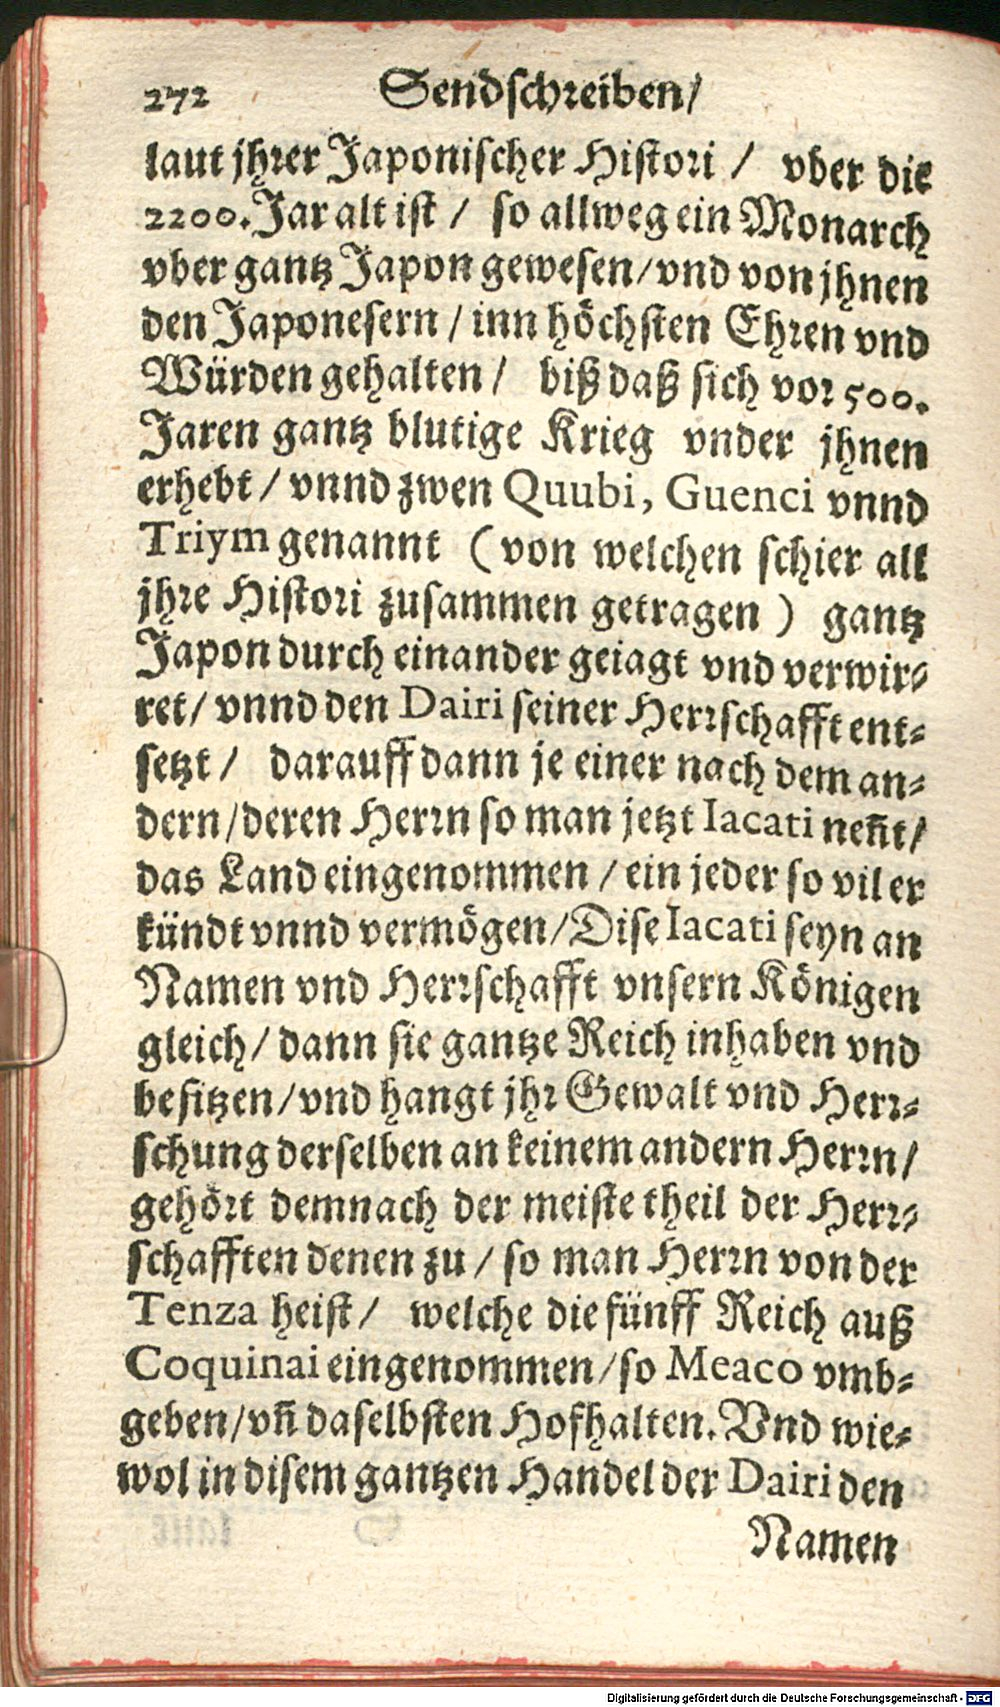 272 Sendschreiben/
laut jhrer Japonischer Histori / vber die
2200. Jar alt ist / so allweg ein Monarch
vber gantz Japon gewesen/ vnd von jhnen
den Japonesern / inn höchsten Ehren vnd
Würden gehalten / biß daß sich vor 500.
Jaren gantz blutige Krieg vnder jhnen
erhebt / vnnd zwen Quubi, Guenci vnnd
Triym genannt (von welchen schier all
jhre Histori zusammen getragen) gantz
Japon durch einander geiagt vnd verwir-
ret/ vnnd den Dairi seiner Herrschafft ent-
setzt / darauff dann je einer nach dem an-
dern/deren Herrn so man jetzt Iacati neñt/
das Land eingenommen / ein jeder so vil er
kündt vnnd vermögen/Dise Iacati seyn an
Namen vnd Herrschafft vnsern Königen
gleich/ dann sie gantze Reich inhaben vnd
besitzen/vnd hangt jhr Gewalt vnd Herr-
schung derselben an keinem andern Herrn/
gehört demnach der meiste theil der Herr-
schafften denen zu / so man Herrn von der
Tenza heist/ welche die fünff Reich auß
Coquinai eingenommen/so Meaco vmb-
geben/vñ daselbsten Hofhalten. Vnd wie-
wol in disem gantzen Handel der Dairi den
Namen
Digitalisierung gefördert durch die Deutsche Forschungsgemeinschaft - DFG